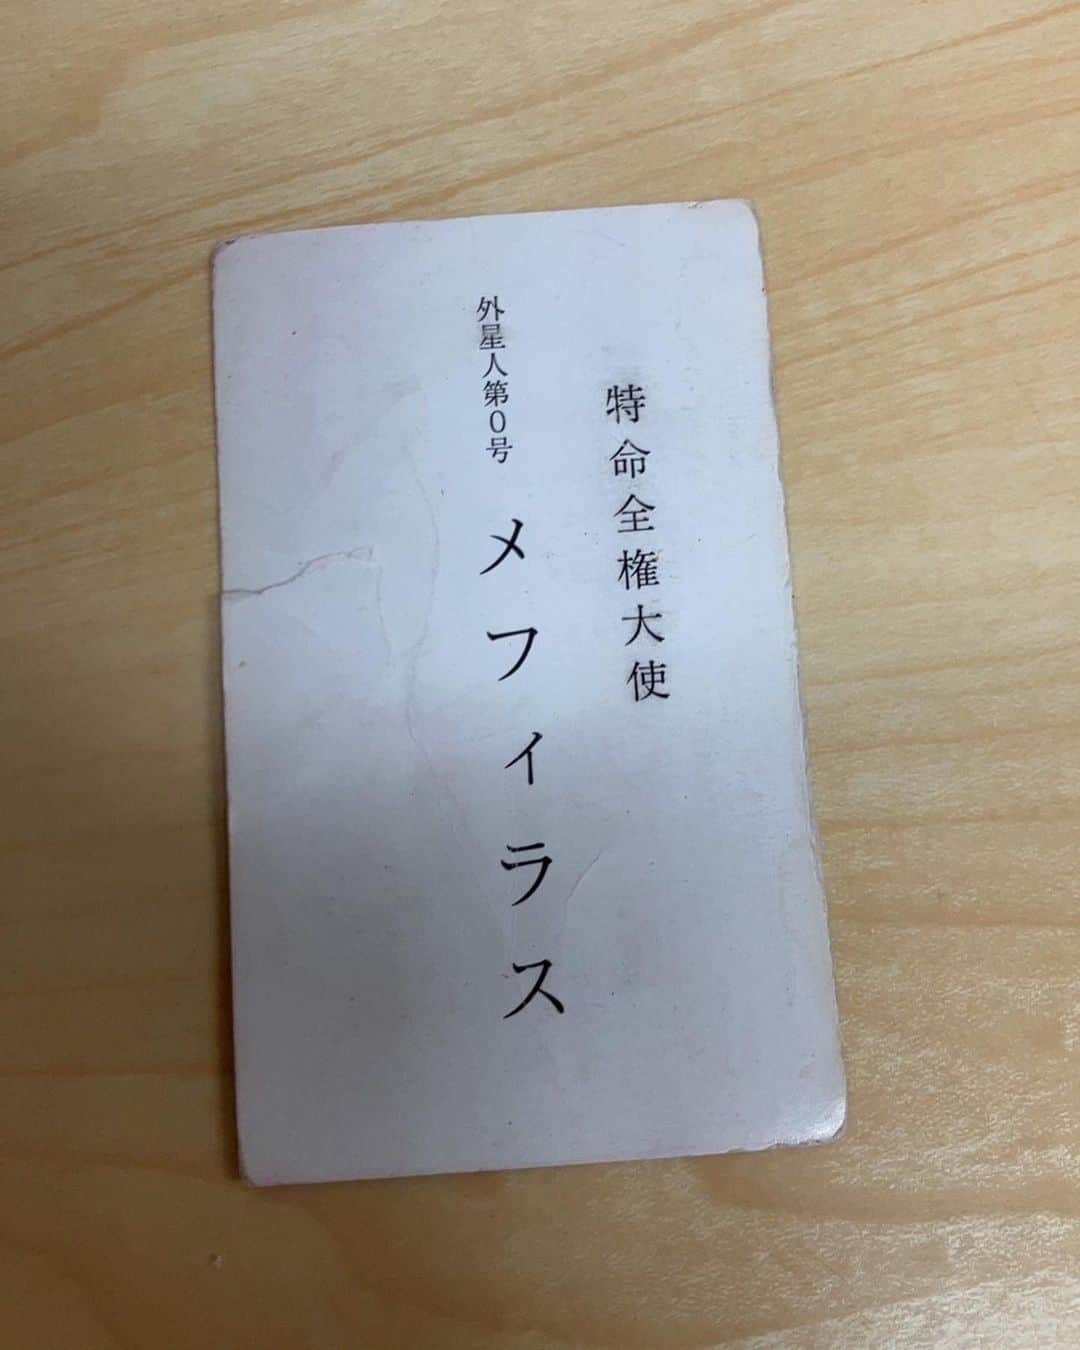 特命全権大使
外星人第0号 メフィラス